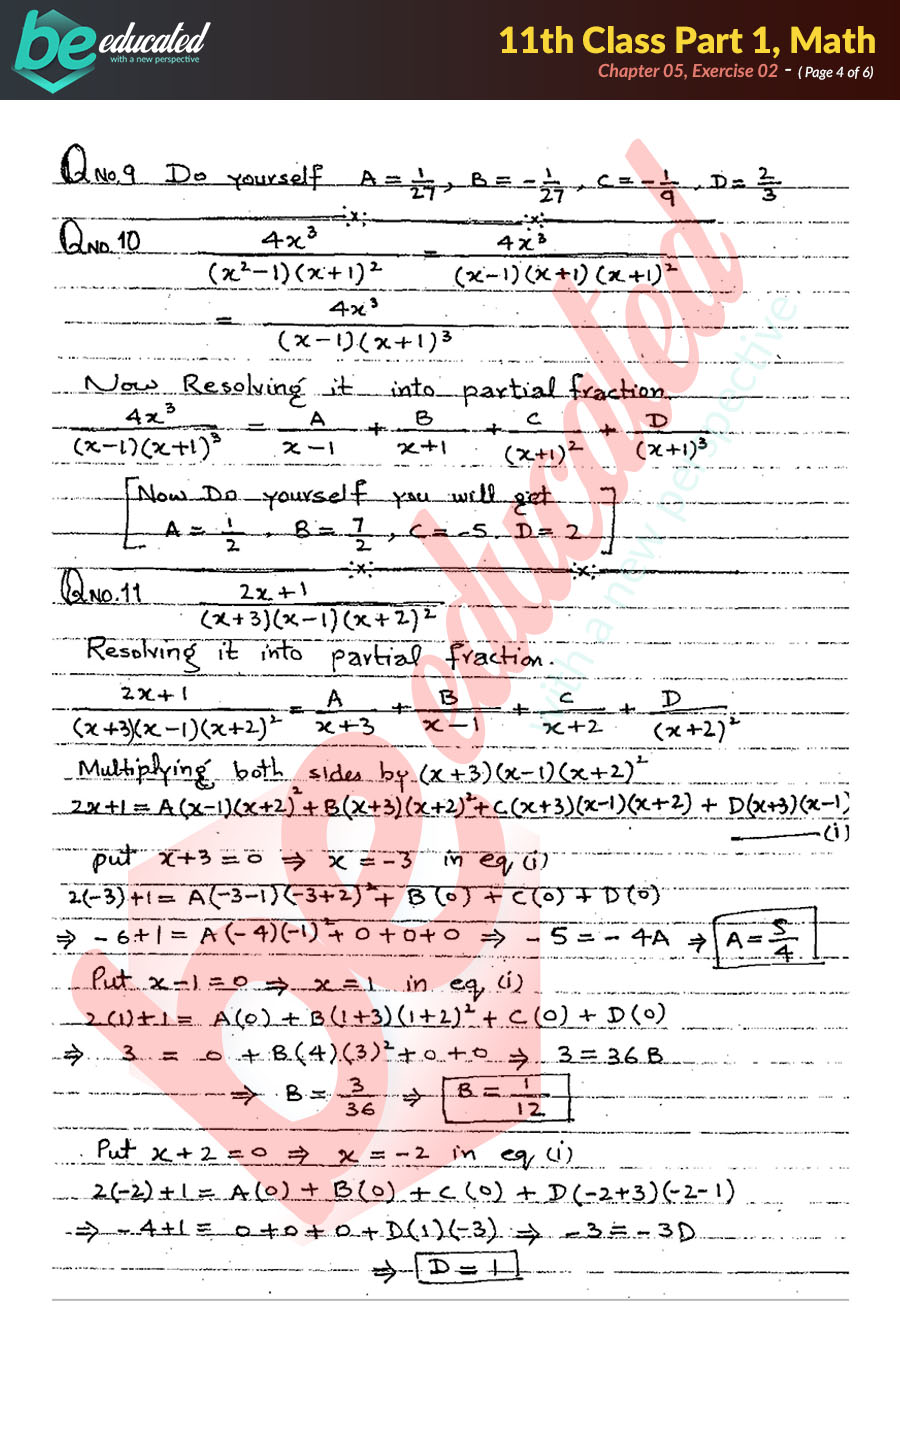 be educated
with a new perspective
11th Class Part 1, Math
Chapter 05, Exercise 02 - ( Page 4 of 6)
Q No.9 Do yourself A = 1/27, B = -1/27, C = -1/9, D = 2/3
Q No.10 4x³/((x²-1)(x+1)²) = 4x³/((x-1)(x+1)(x+1)²)
= 4x³/((x-1)(x+1)³)
Now Resolving it into partial fraction.
4x³/((x-1)(x+1)³) = A/(x-1) + B/(x+1) + C/(x+1)² + D/(x+1)³
[Now Do yourself you will get
A = 1/2, B = 7/2, C = -5, D = 2]
Q No.11 (2x+1)/((x+3)(x-1)(x+2)²)
Resolving it into partial fraction.
(2x+1)/((x+3)(x-1)(x+2)²) = A/(x+3) + B/(x-1) + C/(x+2) + D/(x+2)²
Multiplying both sides by (x+3)(x-1)(x+2)²
2x+1 = A(x-1)(x+2)² + B(x+3)(x+2)² + C(x+3)(x-1)(x+2) + D(x+3)(x-1)
——— (i)
put x+3 = 0 ⇒ x = -3 in eq (i)
2(-3)+1 = A(-3-1)(-3+2)² + B(0) + C(0) + D(0)
⇒ -6+1 = A(-4)(-1)² + 0+0+0 ⇒ -5 = -4A ⇒ A = 5/4
Put x-1 = 0 ⇒ x = 1 in eq (i)
2(1)+1 = A(0) + B(1+3)(1+2)² + C(0) + D(0)
⇒ 3 = 0 + B(4)(3)² + 0+0 ⇒ 3 = 36B
⇒ B = 3/36 ⇒ B = 1/12
Put x+2 = 0 ⇒ x = -2 in eq (i)
2(-2)+1 = A(0) + B(0) + C(0) + D(-2+3)(-2-1)
⇒ -4+1 = 0+0+0+D(1)(-3) ⇒ -3 = -3D
⇒ D = 1
be educated
with a new perspective